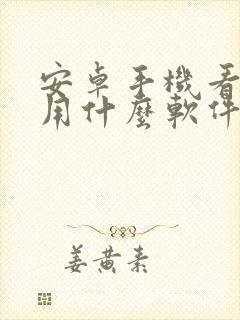 安卓手機看
用什麼軟件
姜黄素